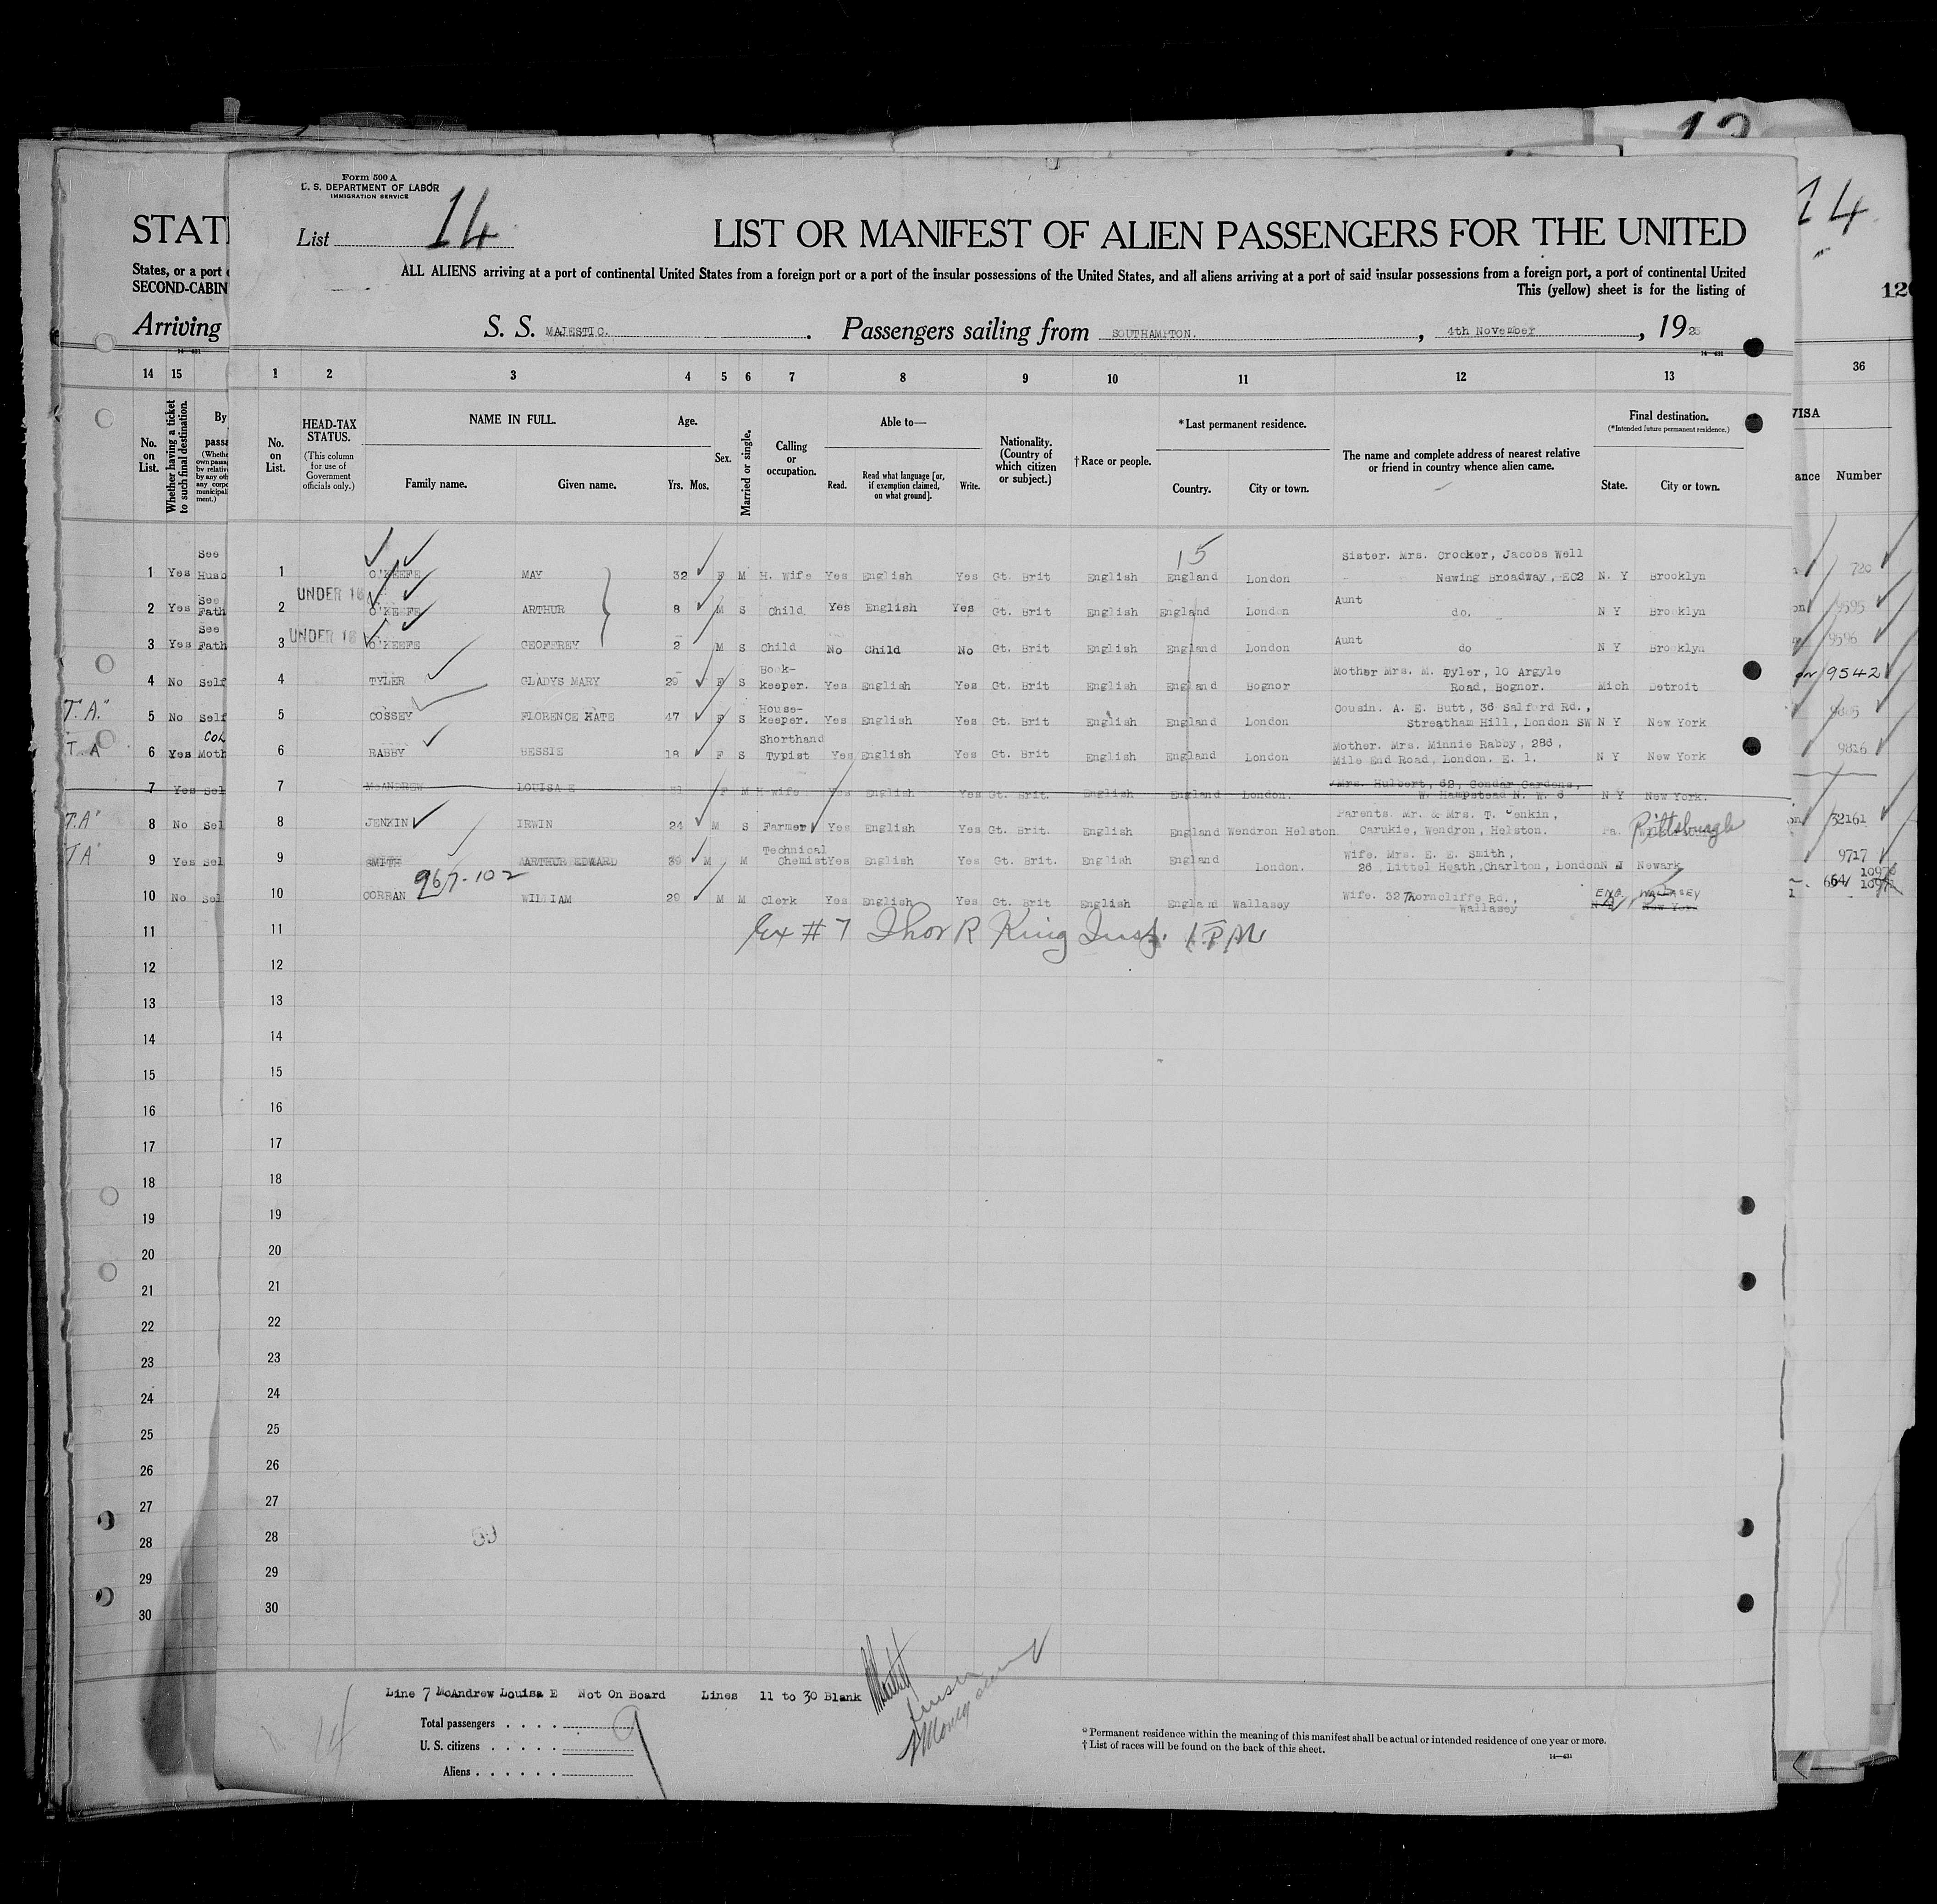 Form 500 A
U. S. DEPARTMENT OF LABOR
IMMIGRATION SERVICE
List 14
LIST OR MANIFEST OF ALIEN PASSENGERS FOR THE UNITED
ALL ALIENS arriving at a port of continental United States from a foreign port or a port of the insular possessions of the United States, and all aliens arriving at a port of said insular possessions from a foreign port, a port of continental United
This (yellow) sheet is for the listing of
S. S. MAJESTIC. Passengers sailing from SOUTHAMPTON. , 4th November , 1925
STAT
States, or a port
SECOND-CABIN
Arriving
14
12
1 2 3 4 5 6 7 8 9 10 11 12 13
14 15 36
No. on List.
HEAD-TAX STATUS.
(This column for use of Government officials only.)
NAME IN FULL.
Family name. Given name.
Age.
Yrs. Mos.
Sex.
Married or single.
Calling or occupation.
Able to—
Read. Read what language [or, if exemption claimed, on what ground]. Write.
Nationality. (Country of which citizen or subject.)
†Race or people.
*Last permanent residence.
Country. City or town.
The name and complete address of nearest relative or friend in country whence alien came.
Final destination.
(*Intended future permanent residence.)
State. City or town.
No. on List.
Whether having a ticket to such final destination.
Number
15
1 O'KEEFE MAY 32 F M H. Wife Yes English Yes Gt. Brit English England London Sister. Mrs. Crocker, Jacobs Well
Newing Broadway, EC2 N. Y Brooklyn
UNDER 16
2 O'KEEFE ARTHUR 8 M S Child Yes English Yes Gt. Brit English England London Aunt do. N Y Brooklyn
UNDER 16
3 O'KEEFE GEOFFREY 2 M S Child No Child No Gt. Brit English England London Aunt do N Y Brooklyn
4 TYLER GLADYS MARY 29 F S Book-keeper. Yes English Yes Gt. Brit English England Bognor Mother Mrs. M. Tyler, 10 Argyle
Road, Bognor. Mich Detroit
5 COSSEY FLORENCE KATE 47 F S House-keeper. Yes English Yes Gt. Brit English England London Cousin. A. E. Butt, 36 Salford Rd.,
Streatham Hill, London SW N Y New York
6 RABBY BESSIE 18 F S Shorthand Typist Yes English Yes Gt. Brit English England London Mother. Mrs. Minnie Rabby, 286,
Mile End Road, London. E. 1. N Y New York
7 McANDREW LOUISA E 31 F M H. wife Yes English Yes Gt. Brit. English England London. Mrs. Hulbert, 62, Gondar Gardens,
W. Hampstead N. W. 6 N Y New York.
8 JENKIN IRWIN 24 M S Farmer Yes English Yes Gt. Brit. English England Wendron Helston Parents. Mr. & Mrs. T. Jenkin,
Carukie, Wendron, Helston. Pa. Pittsburgh
9 SMITH ARTHUR EDWARD 39 M M Technical Chemist Yes English Yes Gt. Brit. English England London. Wife. Mrs. E. E. Smith,
26 Littel Heath, Charlton, London N J Newark
967-102
10 CORRAN WILLIAM 29 M M Clerk Yes English Yes Gt. Brit English England Wallasey Wife. 32 Thorncliffe Rd.,
Wallasey ENG. WALLASEY
New York
Ex # 7 Thor R King Insp.
11
12
13
14
15
16
17
18
19
20
21
22
23
24
25
26
27
28
29
30
1 Yes See Husb
2 Yes See Fath
3 Yes See Fath
4 No Self
"T.A." 5 No Self
T. A 6 Yes Moth
7 Yes Sel
T.A" 8 No Sel
T A' 9 Yes Sel
10 No Sel
11
12
13
14
15
16
17
18
19
20
21
22
23
24
25
26
27
28
29
30
720
9595
9596
9542
9816
32161
9717
59
Line 7 McAndrew Louisa E Not On Board Lines 11 to 30 Blank
Total passengers . . . . 9
U. S. citizens . . . . .
Aliens . . . . . .
14
* Permanent residence within the meaning of this manifest shall be actual or intended residence of one year or more.
† List of races will be found on the back of this sheet.
14—431